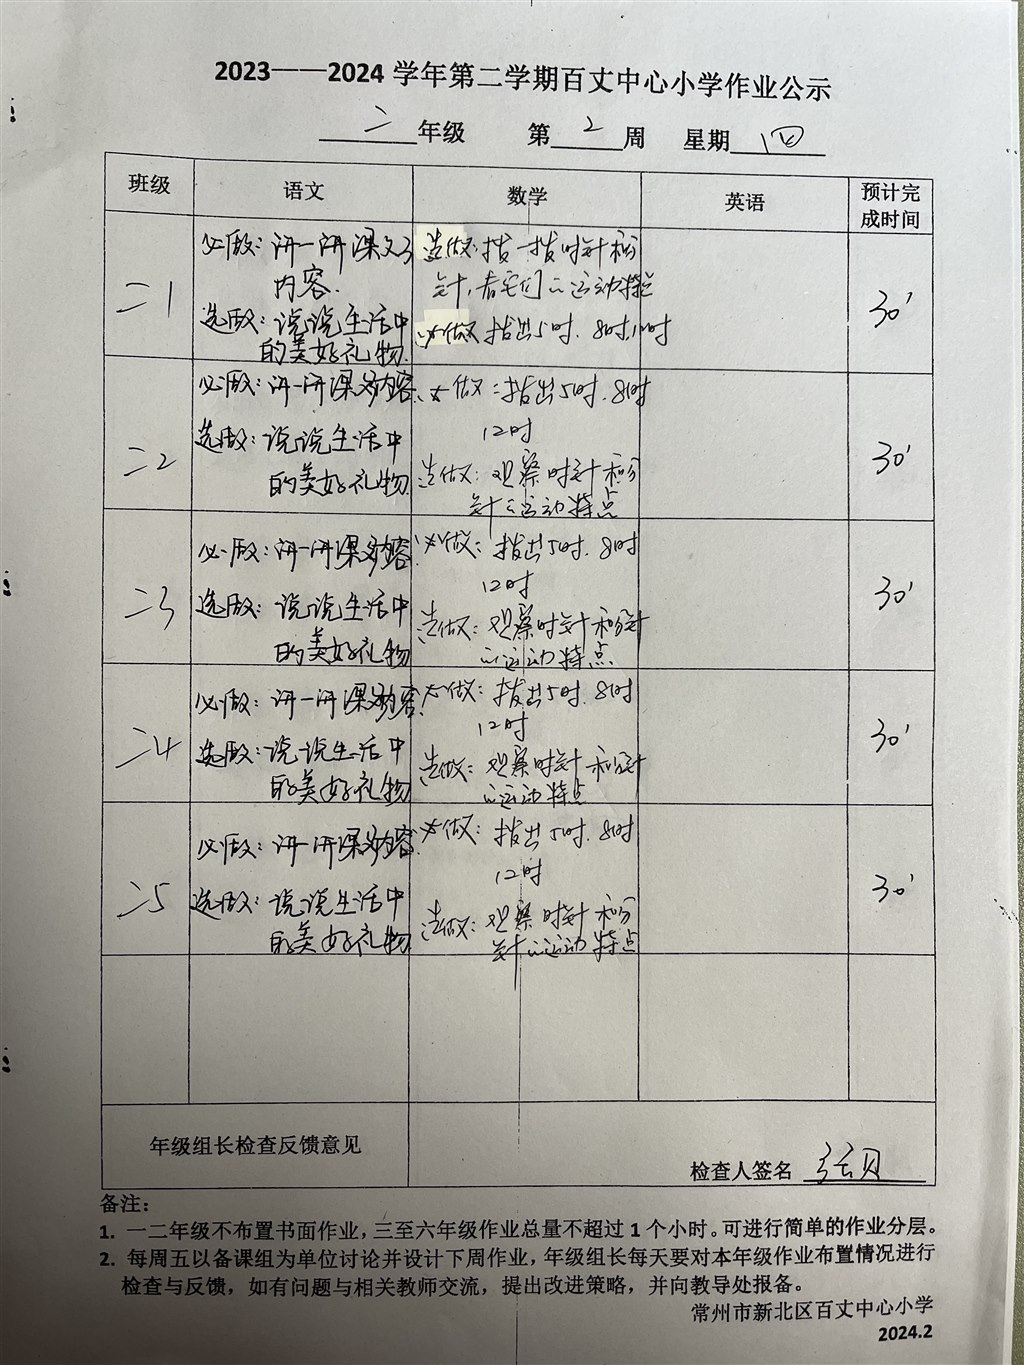 2023——2024 学年第二学期百丈中心小学作业公示
二 年级 第 2 周 星期 四
班级 语文 数学 英语 预计完成时间
二1
必做：讲一讲课文
内容.
选做：说说生活中
的美好礼物.
选做：拨一拨时针和分
针，看它们的运动特点
必做 拨出5时. 8时,12时
30'
二2
必做：讲一讲课文内容.
选做：说说生活中
的美好礼物
必做：拨出5时. 8时
12时
选做：观察时针和分
针的运动特点
30'
二3
必做：讲一讲课文内容.
选做：说说生活中
的美好礼物
必做：拨出5时. 8时
12时
选做：观察时针和分针
的运动特点
30'
二4
必做：讲一讲课文内容.
选做：说一说生活中
的美好礼物
必做：拨出5时. 8时
12时
选做：观察时针和分针
的运动特点
30'
二5
必做：讲一讲课文内容.
选做：说说生活中
的美好礼物
必做：拨出5时. 8时
12时
选做：观察时针和分
针的运动特点
30'
年级组长检查反馈意见
检查人签名
备注：
1. 一二年级不布置书面作业，三至六年级作业总量不超过 1 个小时。可进行简单的作业分层。
2. 每周五以备课组为单位讨论并设计下周作业，年级组长每天要对本年级作业布置情况进行
检查与反馈，如有问题与相关教师交流，提出改进策略，并向教导处报备。
常州市新北区百丈中心小学
2024.2